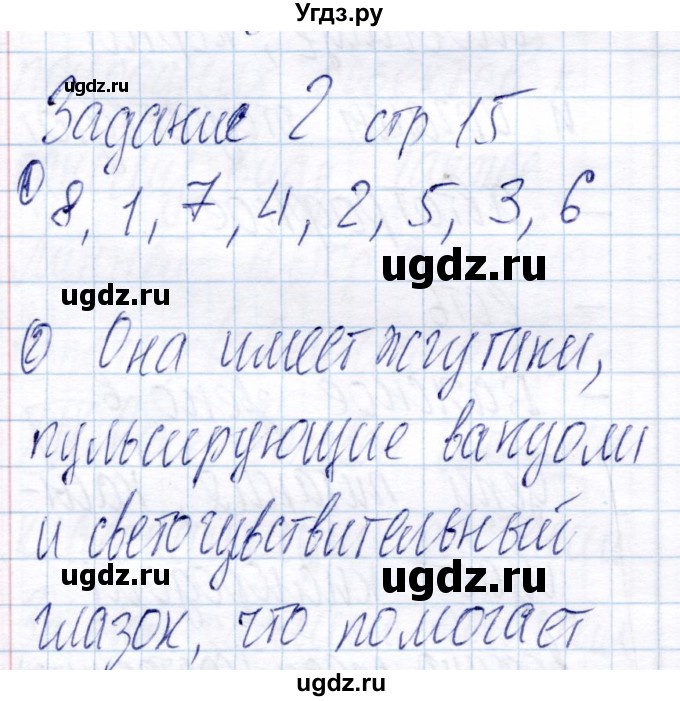 Угдз.ру
ugdz.ru
Задание 2 стр 15
① 8, 1, 7, 4, 2, 5, 3, 6
ugdz.ru
ugdz.ru
② Она имеет жгутики,
пульсирующие вакуоли
и светочувствительный
ugdz.ru
ugdz.ru
глазок, что помогает
ugdz.ru